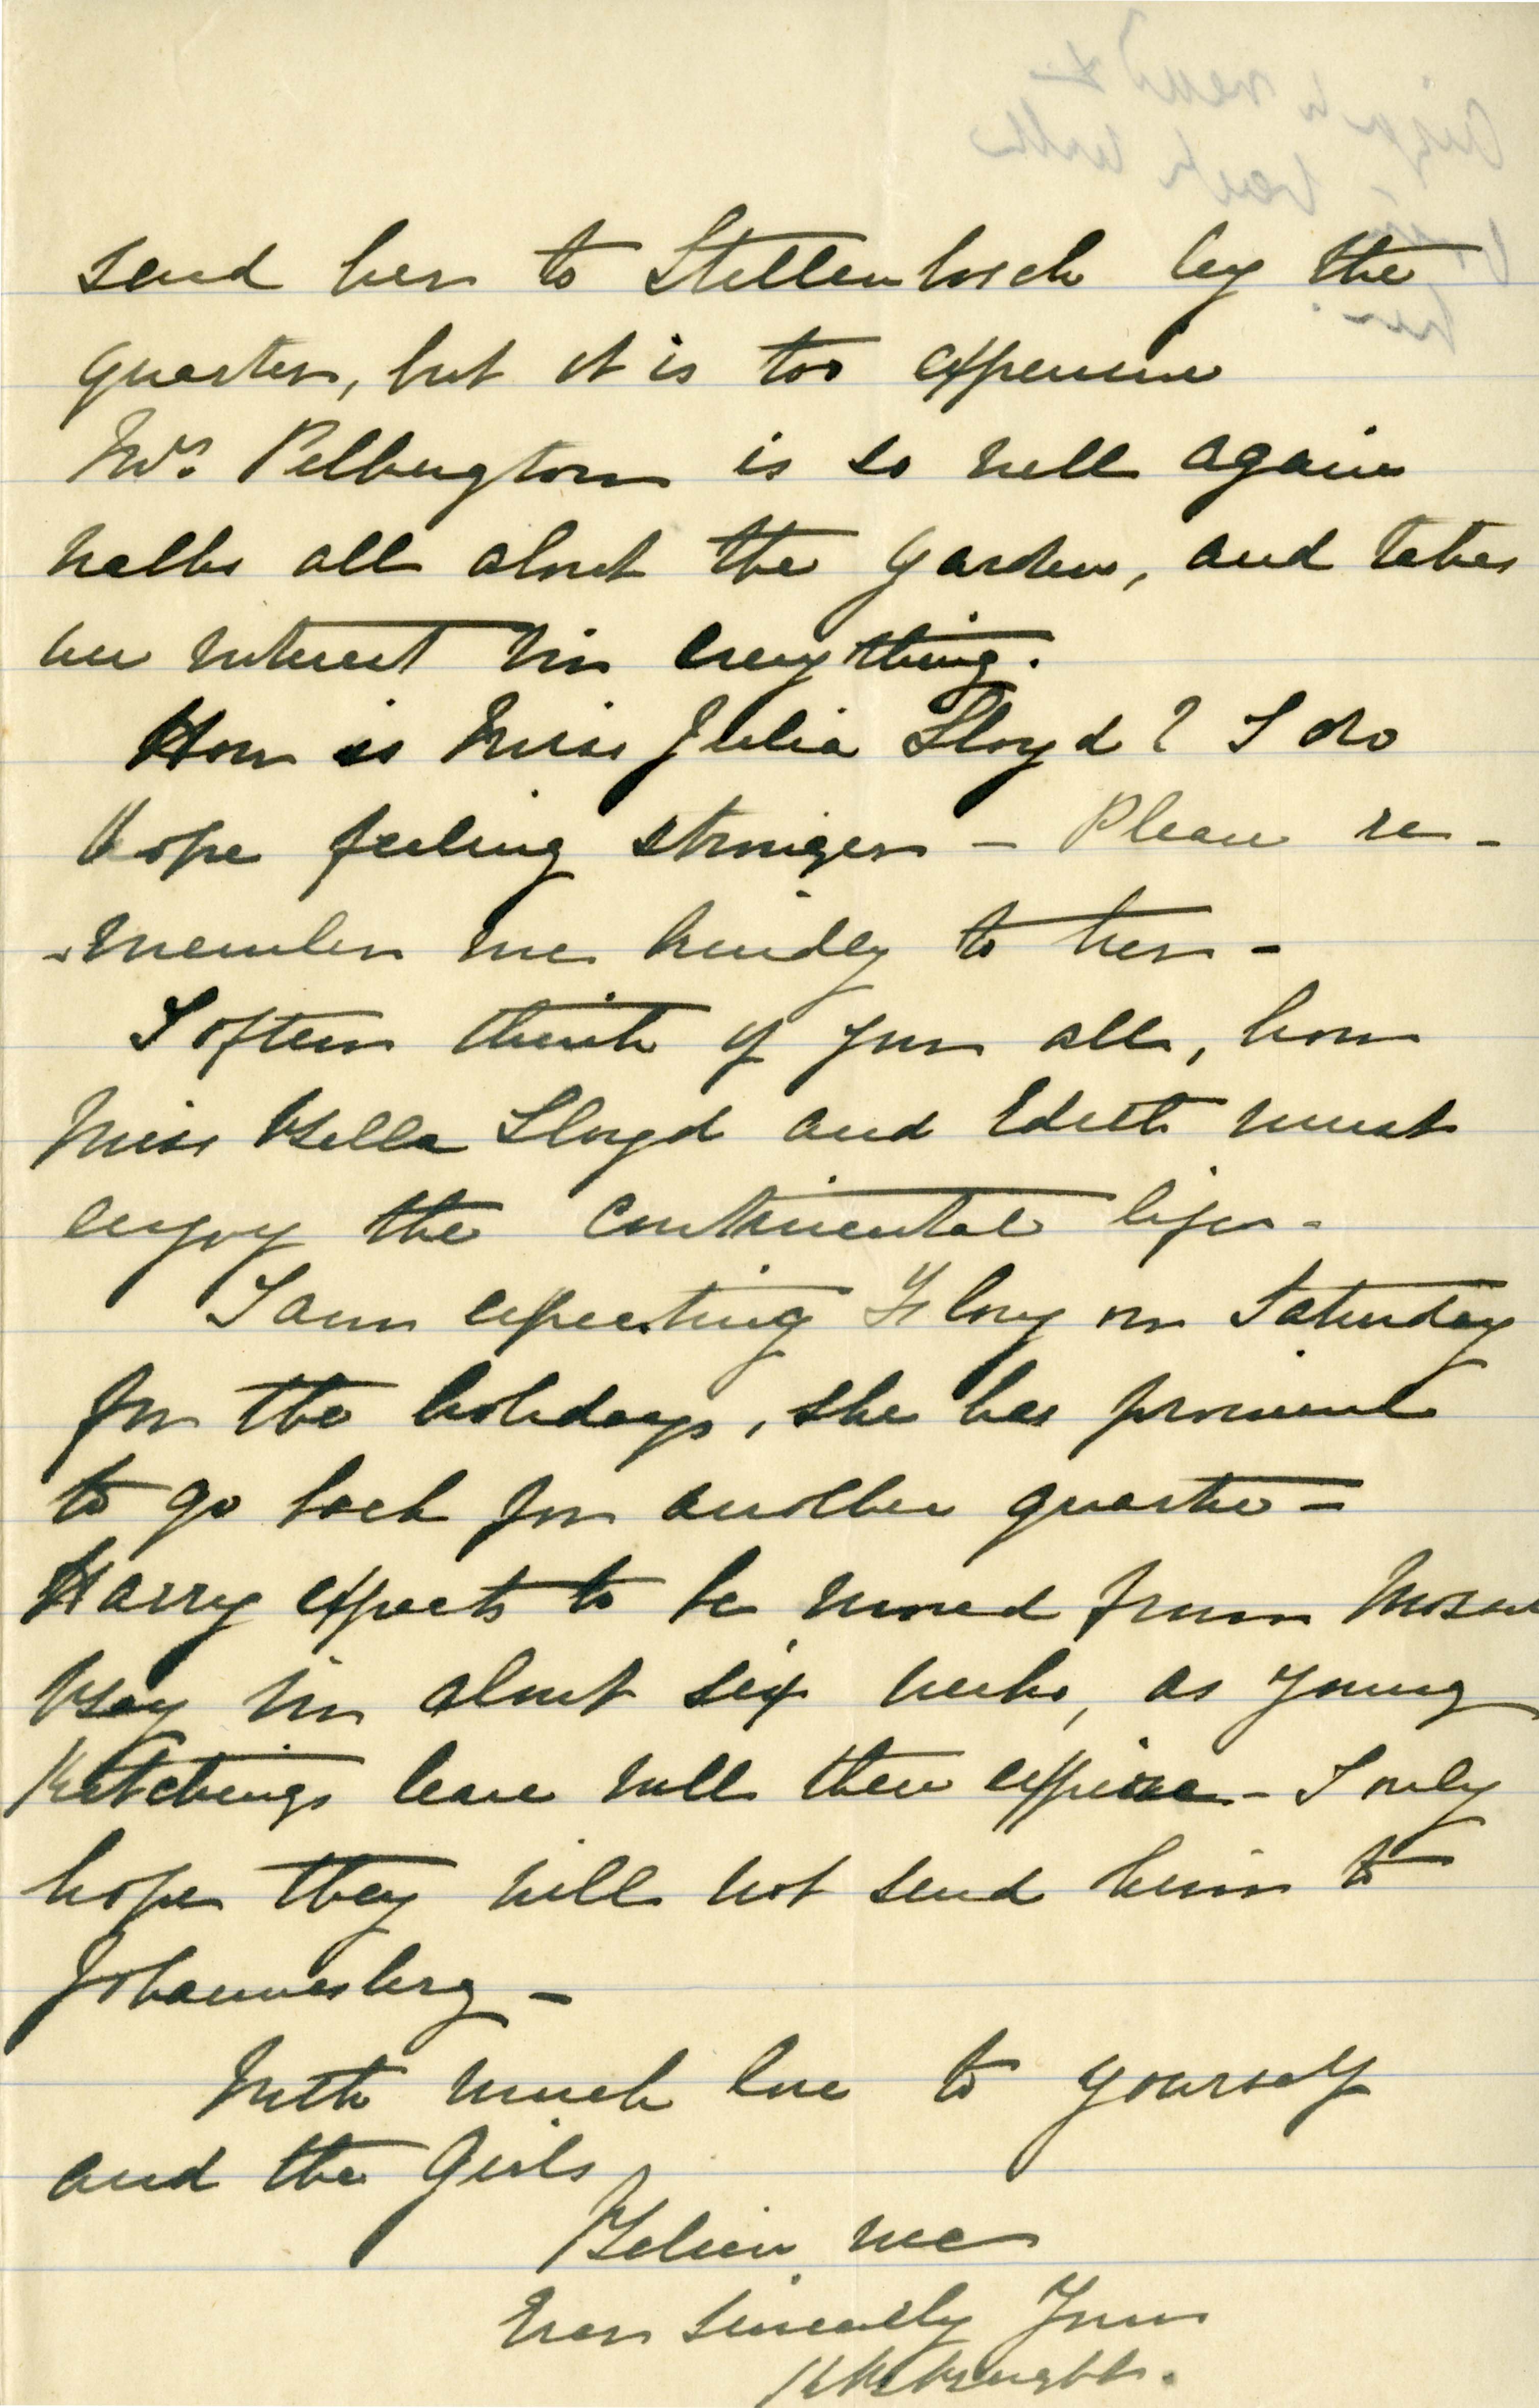 send her to Stellenbosch by the
quarter, but it is too expensive
Mrs. Pilkington is so well again
walks all about the garden, and takes
an interest in everything.
How is Miss Julia Lloyd? I do
hope feeling stronger – Please re-
-member me kindly to her –
I often think of you all, how
Miss Bella Lloyd and Edith must
enjoy the Continental life.
I am expecting Flory on Saturday
for the holidays, she has promised
to go back for another quarter –
Harry expects to be moved from Mossel
Bay in about six weeks, as young
Kitchings leave will then expire – I only
hope they will not send him to
Johannesberg –
With much love to yourself
and the Girls,
Believe me
Ever sincerely Yours